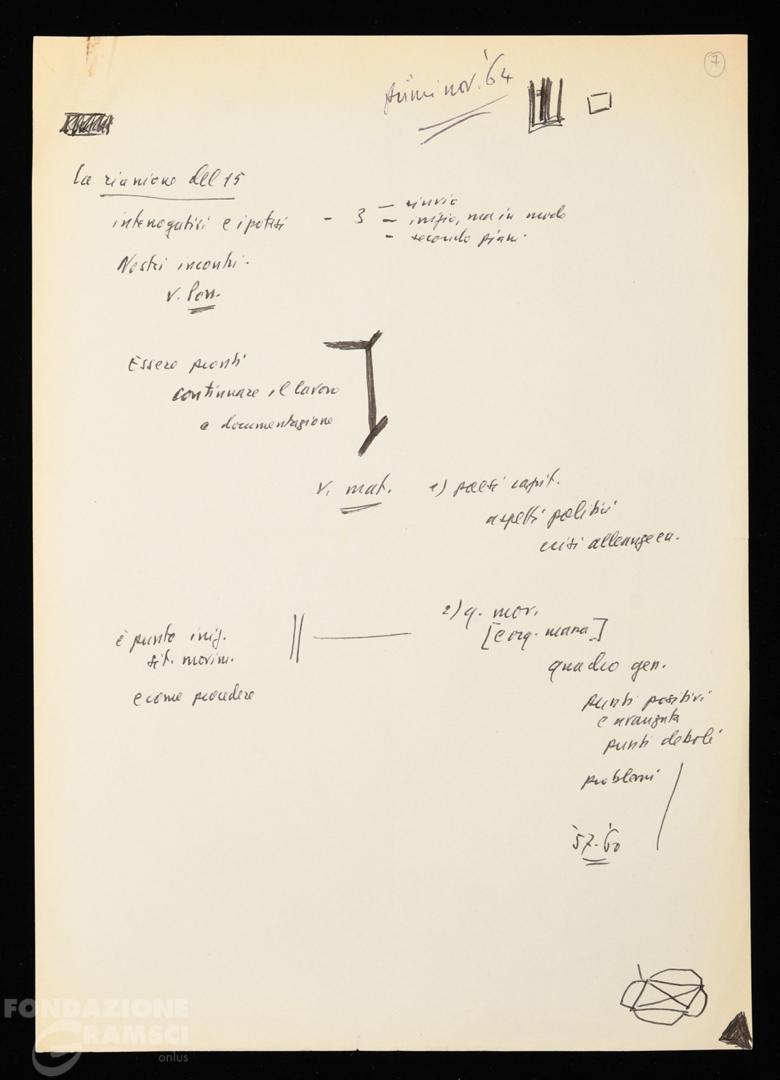 primi nov. '64
7
La riunione del 15
interrogativi e ipotesi - 3 - rinvio
- inizio, ma in modo
- secondo piani
Nostri incontri.
v. Pon.
Essere pronti
continuare il lavoro
e documentazione
v. mat. 1) paesi capit.
aspetti politici
crisi alleanze ecc.
2) q. mov.
[e org. massa]
è punto iniz.
sit. movim.
quadro gen.
e come procedere
punti positivi
e avanzata
punti deboli
problemi
'57-'60
FONDAZIONE
GRAMSCI
onlus